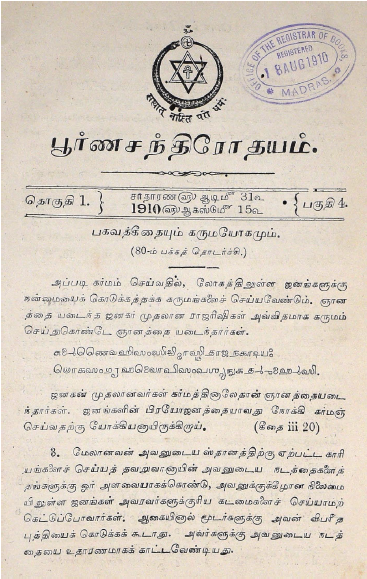 OFFICE OF THE REGISTRAR OF BOOKS,
REGISTERED
18 AUG 1910
MADRAS.
सत्यात् नास्ति परो धर्मः
பூர்ணசந்திரோதயம்.
தொகுதி 1.
சாதாரண ௵ ஆடி ௴ 31 ௳
1910 ௵ ஆகஸ்டு ௴ 15 ௳
பகுதி 4.
பகவத்கீதையும் கருமயோகமும்.
(80-ம் பக்கத் தொடர்ச்சி.)
அப்படி கர்மம் செய்வதில், லோகத்திலுள்ள ஜனங்களுக்கு
நன்மையைக் கொடுக்கத்தக்க கருமங்களைச் செய்யவேண்டும். ஞான
த்தை யடைந்த ஜனகர் முதலான ராஜரிஷிகள் அவ்விதமாக கருமம்
செய்துகொண்டே ஞானத்தை யடைந்தார்கள்.
ஜனகன் முதலானவர்கள் கர்மத்தினாலேதான் ஞானத்தையடை
ந்தார்கள். ஜனங்களின் பிரயோஜனத்தையாவது நோக்கி கர்மஞ்
செய்வதற்கு யோக்கியனாயிருக்கிறாய். (கீதை iii 20)
8. மேலானவன் அவனுடைய ஸ்தானத்திற்கு ஏற்பட்ட காரி
யங்களைச் செய்யத் தவறுவானாயின் அவனுடைய நடத்தைகளைத்
தங்களுக்கு ஓர் அளவையாகக்கொண்டு, அவனுக்குக்கீழான நிலைமை
யிலுள்ள ஜனங்கள் அவரவர்களுக்குரிய கடமைகளைச் செய்யாமற்
கெட்டுப்போவார்கள். ஆகையினால் மூடர்களுக்கு அவன் விபரீத
புத்தியைக் கொடுக்கக் கூடாது. அவர்களுக்கு அவனுடைய நடத்
தையை உதாரணமாகக் காட்டவேண்டியது.